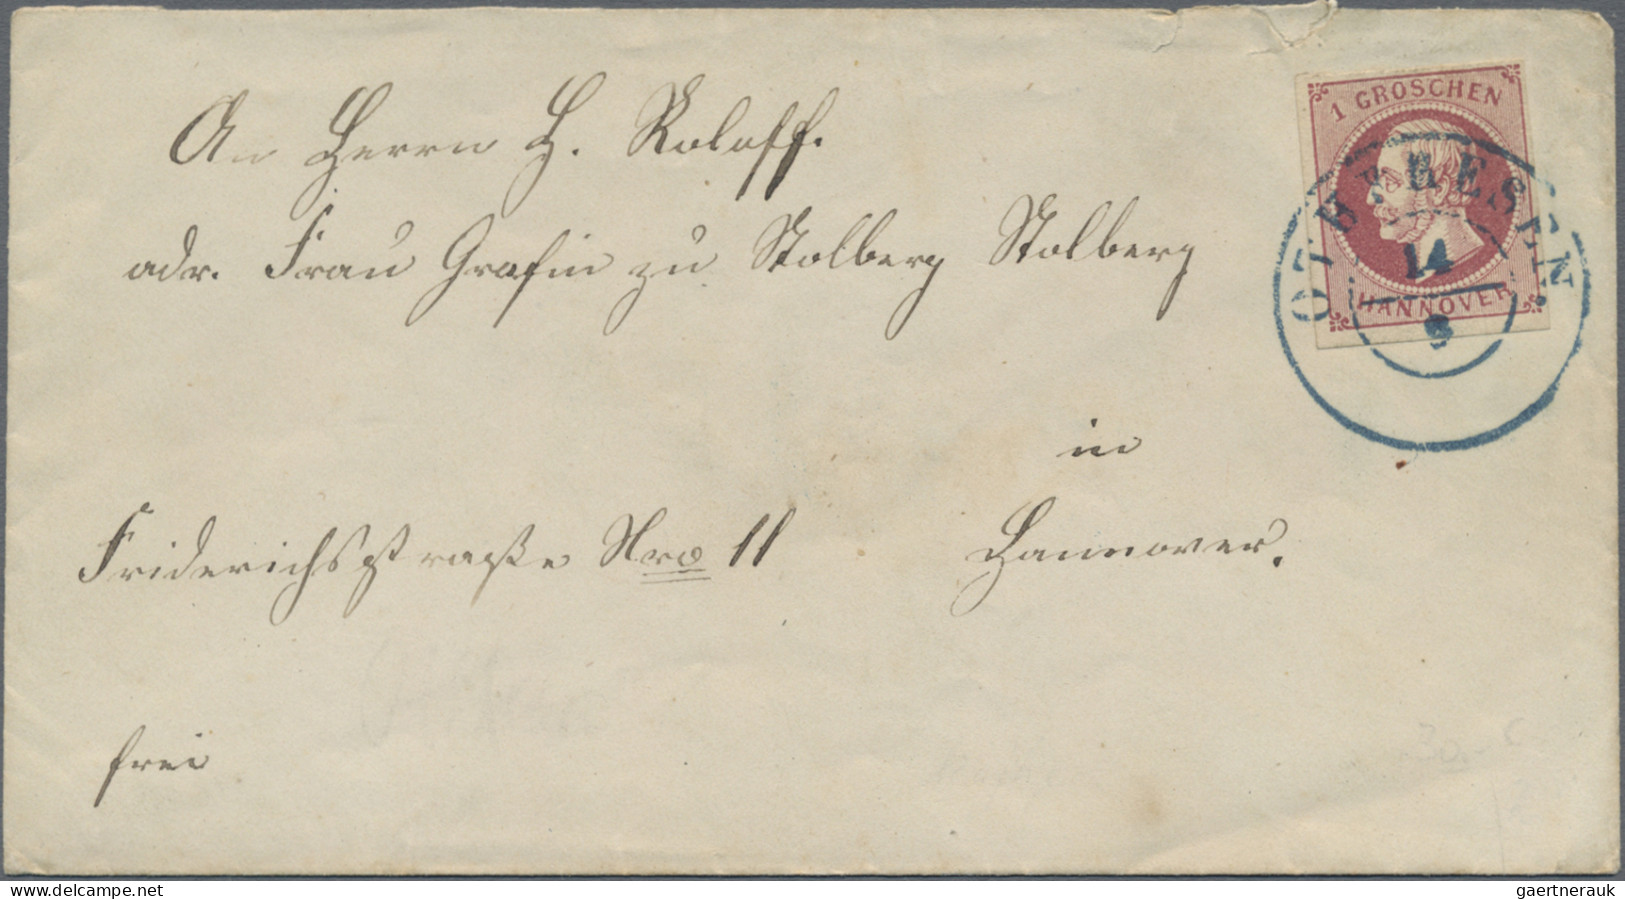 An Herrn H. Roloff.
adr. Frau Grafin zu Stolberg Stolberg
in
Friderichsstraße Nro 11 Hannover.
frei
1 GROSCHEN
HANNOVER
OTHFRESEN
14
5
www.delcampe.net
gaertnerauk